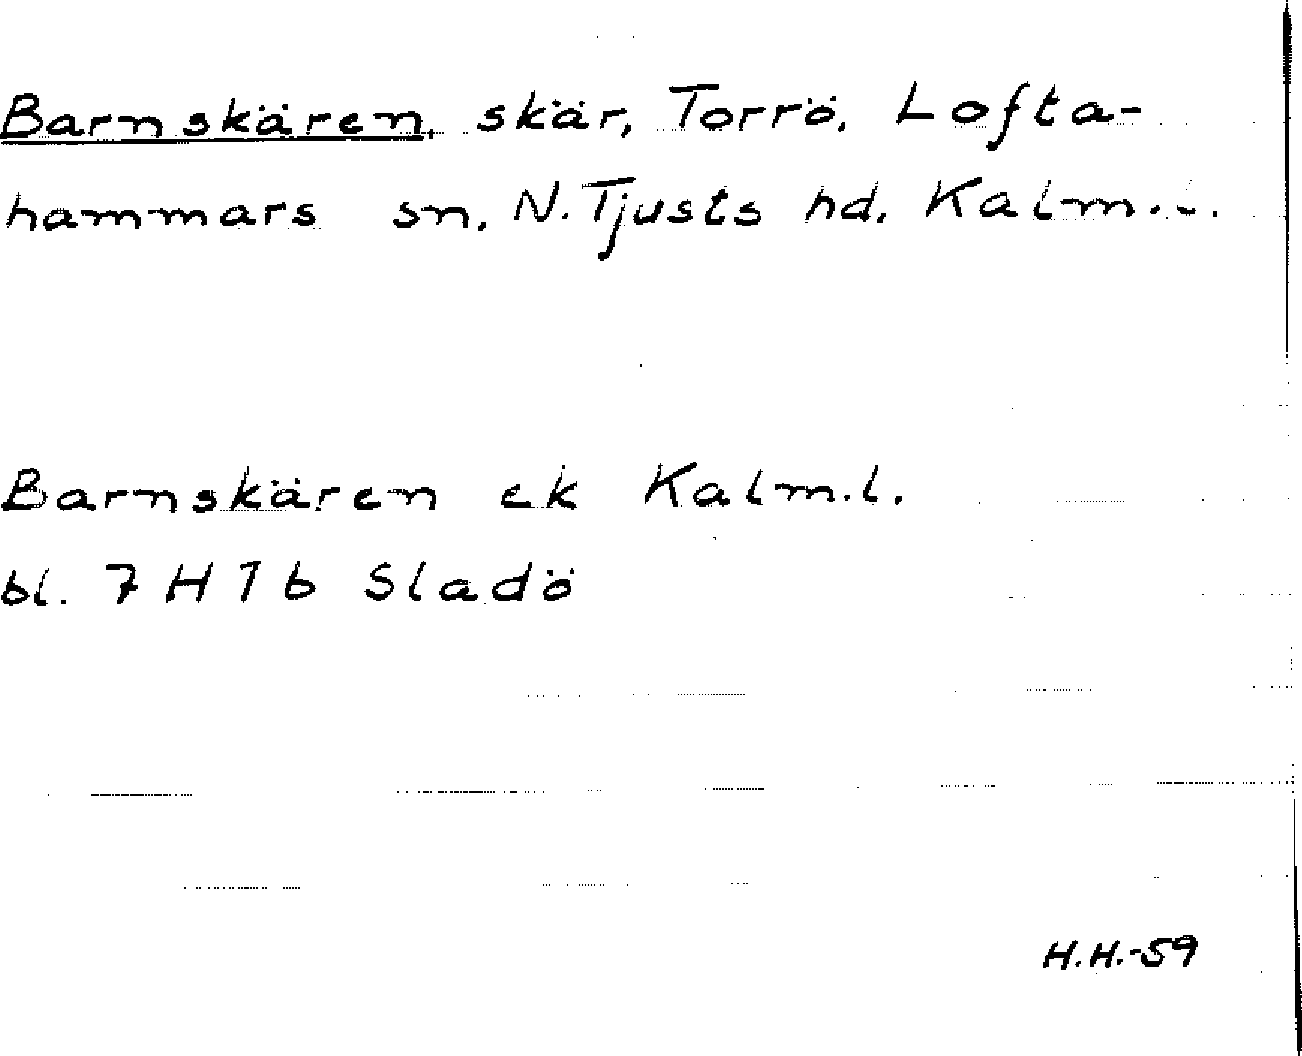 Barnskären, skär, Torrö, Lofta-
hammars sn, N. Tjusts hd. Kalm.l.
Barnskären ek Kalm.l.
bl. 7 H 7 b Sladö
H.H.-59